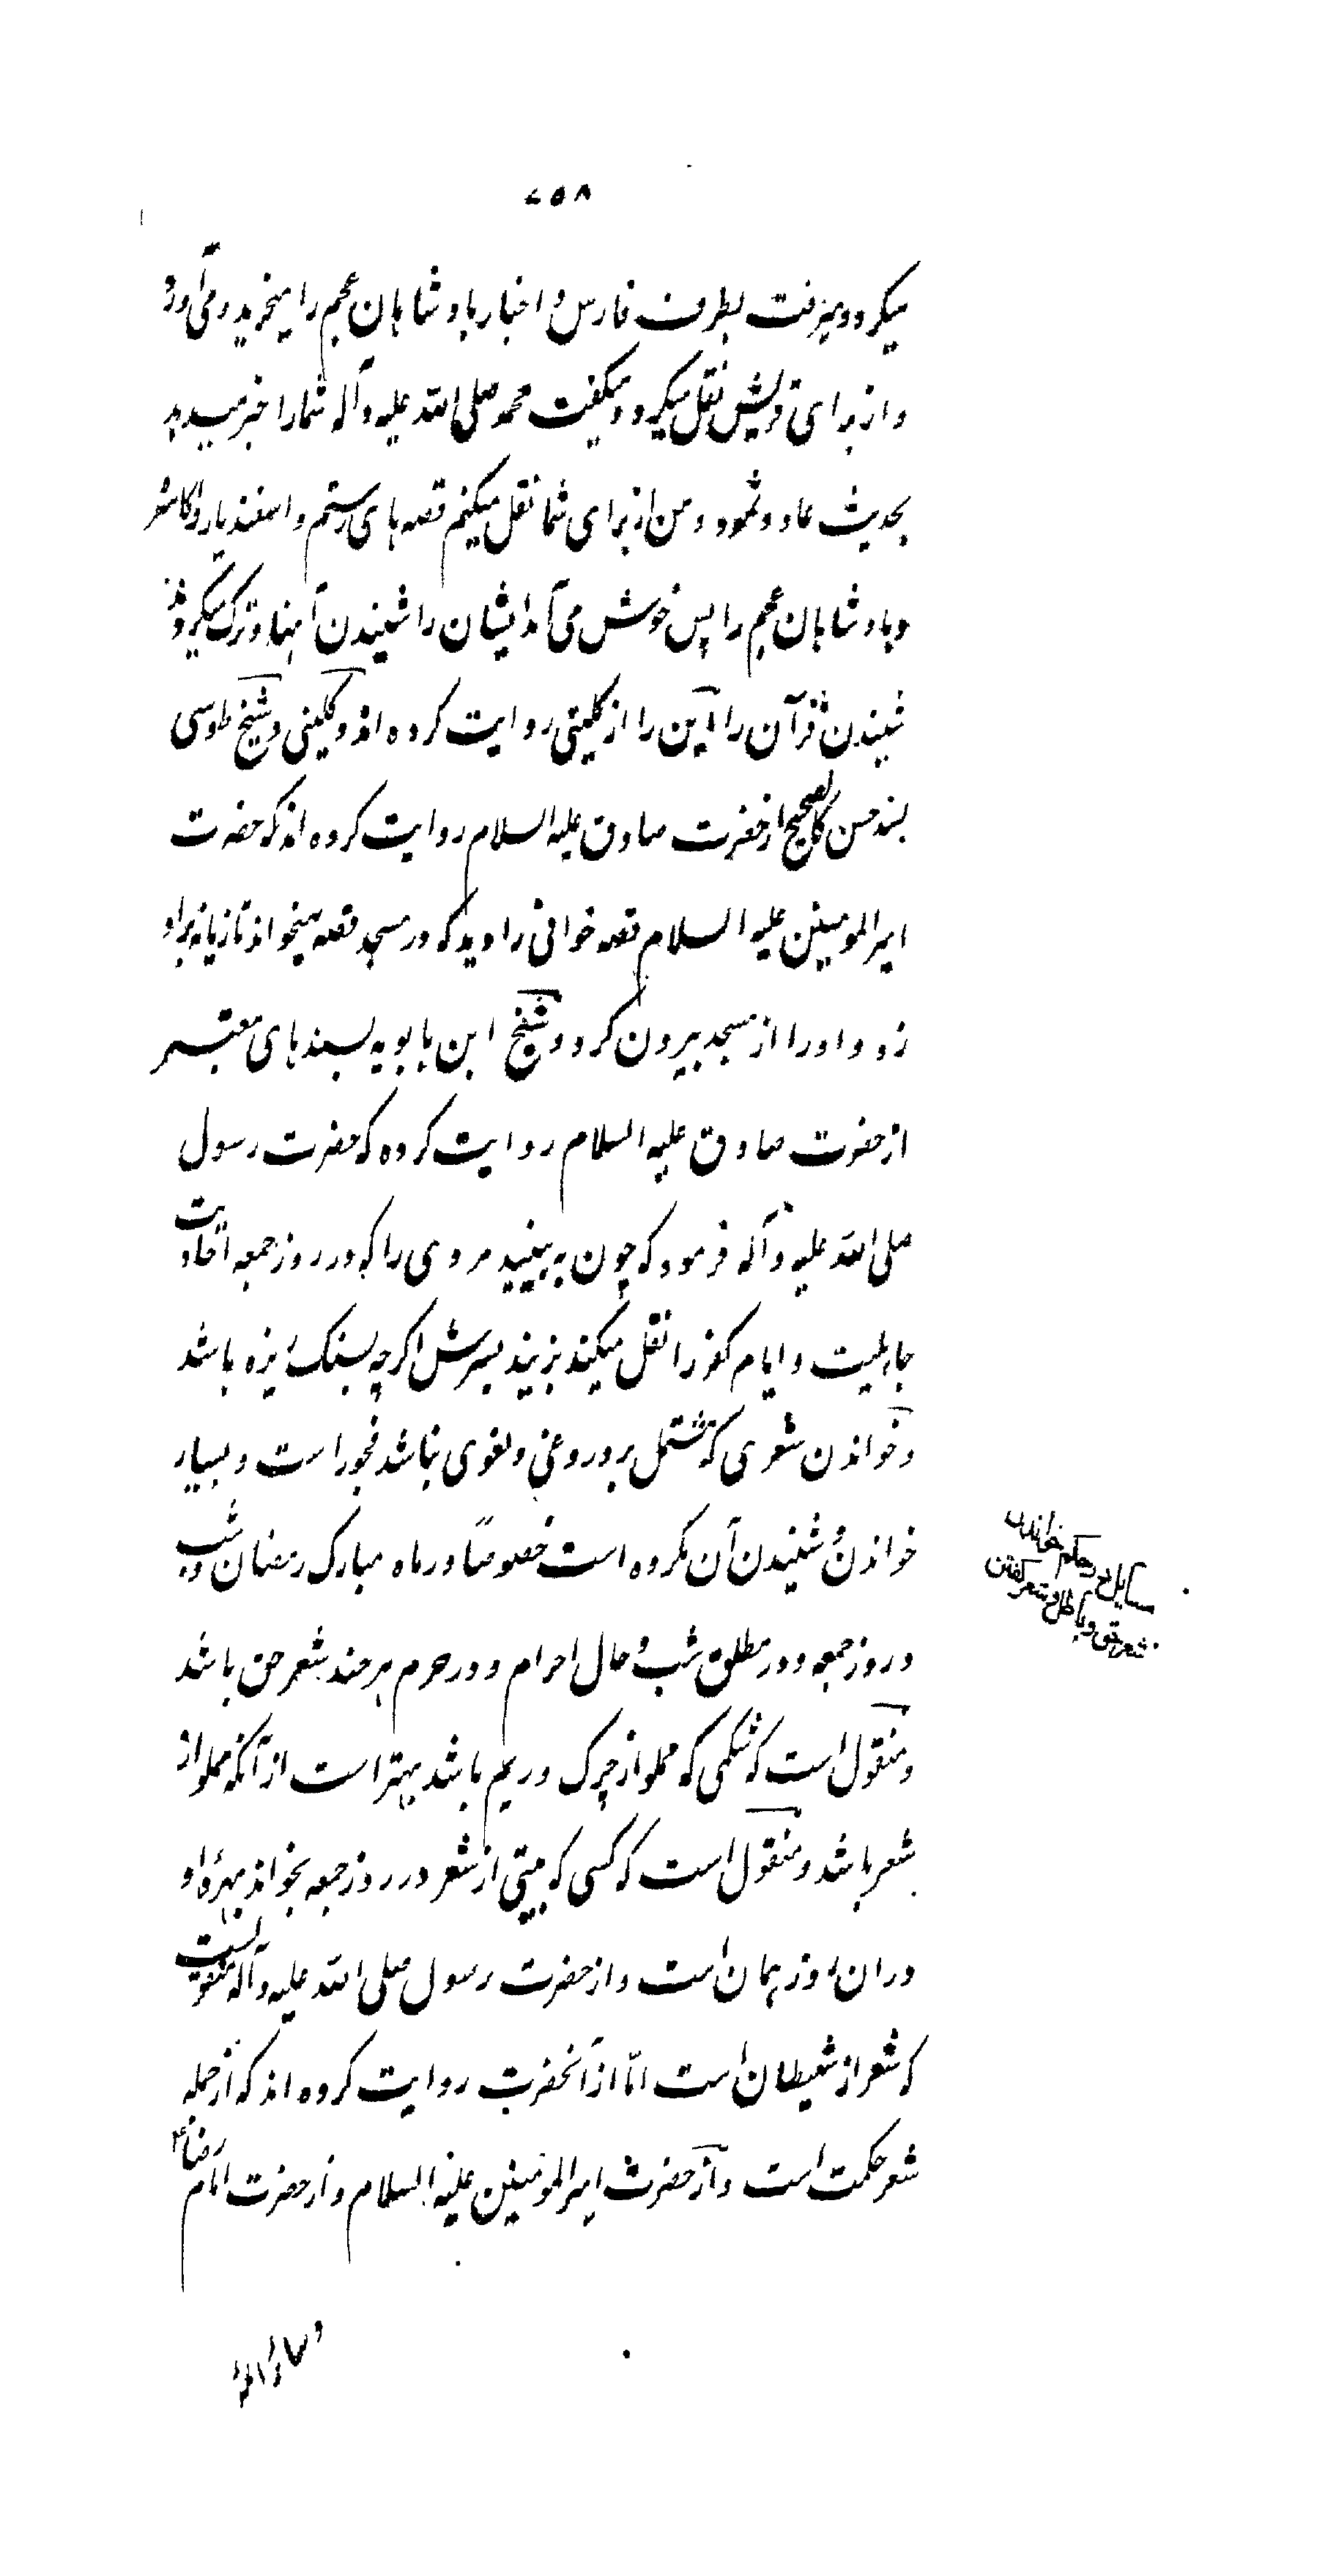 ۷۵۸
میکرد و میرفت بطرف فارس و اخبار پادشاهان عجم را میخرید و می آورد
و از برای قریش نقل میکرد و میکفت محمد صلی الله علیه وآله شما را خبر میدهد
بحدیث عاد و ثمود و من از برای شما نقل میکنم قصه های رستم و اسفندیار و اکاسره
و پادشاهان عجم را پس خوش می آمد ایشان را شنیدن آنها و ترک میکردند
شنیدن قرآن را این را از کلینی روایت کرده اند و کلینی و شیخ طوسی
بسند حسن کالصحیح از حضرت صادق علیه السلام روایت کرده اند که حضرت
امیر المومنین علیه السلام قصه خوانی را دید که در مسجد قصه میخواند تازیانه بر او
زد و او را از مسجد بیرون کرد و شیخ ابن بابویه بسندهای معتبر
از حضرت صادق علیه السلام روایت کرده که حضرت رسول
صلی الله علیه وآله فرمود که چون به بینید مردی را که در روز جمعه احادیث
جاهلیت و ایام کفر را نقل میکند بزنید بسرش اکرچه بسنک ریزه باشد
و خواندن شعری که مشتمل بر دروغی و لغوی نباشد مجوز است و بسیار
خواندن و شنیدن آن مکروه است خصوصًا در ماه مبارک رمضان و شب
و روز جمعه و در مطلق شب و حال احرام و در حرم هر چند شعر حق باشد
و منقول است که شکمی که مملو از چرک و ریم باشد بهتر است از آنکه مملو از
شعر باشد و منقول است که کسی که بیتی از شعر در روز جمعه بخواند بهرۀ او
در ان روز همان است و از حضرت رسول صلی الله علیه وآله منقولست
که شعر از شیطان است امّا از آنحضرت روایت کرده اند که از جمله
شعر حکمت است و از حضرت امیر المومنین علیه السلام و از حضرت امام رضا ع
خواندن
شعر حق و باطل و شعر گفتن